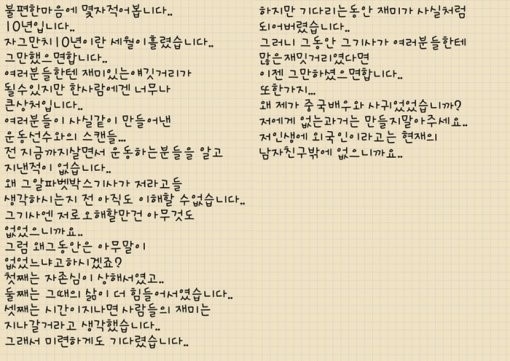 불편한마음에 몇자적어봅니다..
10년입니다..
자그만치10년이란 세월이흘렸습니다..
그만했으면합니다..
여러분들한텐 재미있는얘깃거리가
될수있지만 한사람에겐 너무나
큰상처입니다..
여러분들이 사실같이 만들어낸
운동선수와의 스캔들...
전 지금까지살면서 운동하는분들을 알고
지낸적이 없습니다..
왜 그알파벳박스기사가 저라고들
생각하시는지 전 아직도 이해할 수없습니다..
그기사엔 저로오해할만건 아무것도
없었으니까요..
그럼 왜그동안은 아무말이
없었느냐고하시겠죠?
첫째는 자존심이 상해서였고..
둘째는 그때의 삶이 더 힘들어서였습니다..
셋째는 시간이지나면 사람들의 재미는
지나갈거라고 생각했습니다..
그래서 미련하게도 기다렸습니다..
하지만 기다리는동안 재미가 사실처럼
되어버렸습니다..
그러니 그동안 그기사가 여러분들한테
많은재밋거리였다면
이젠 그만하셨으면합니다..
또한가지...
왜 제가 중국배우와 사귀었었습니까?
저에게 없는과거는 만들지말아주세요..
저인생에 외국인이라고는 현재의
남자친구밖에 없으니까요..